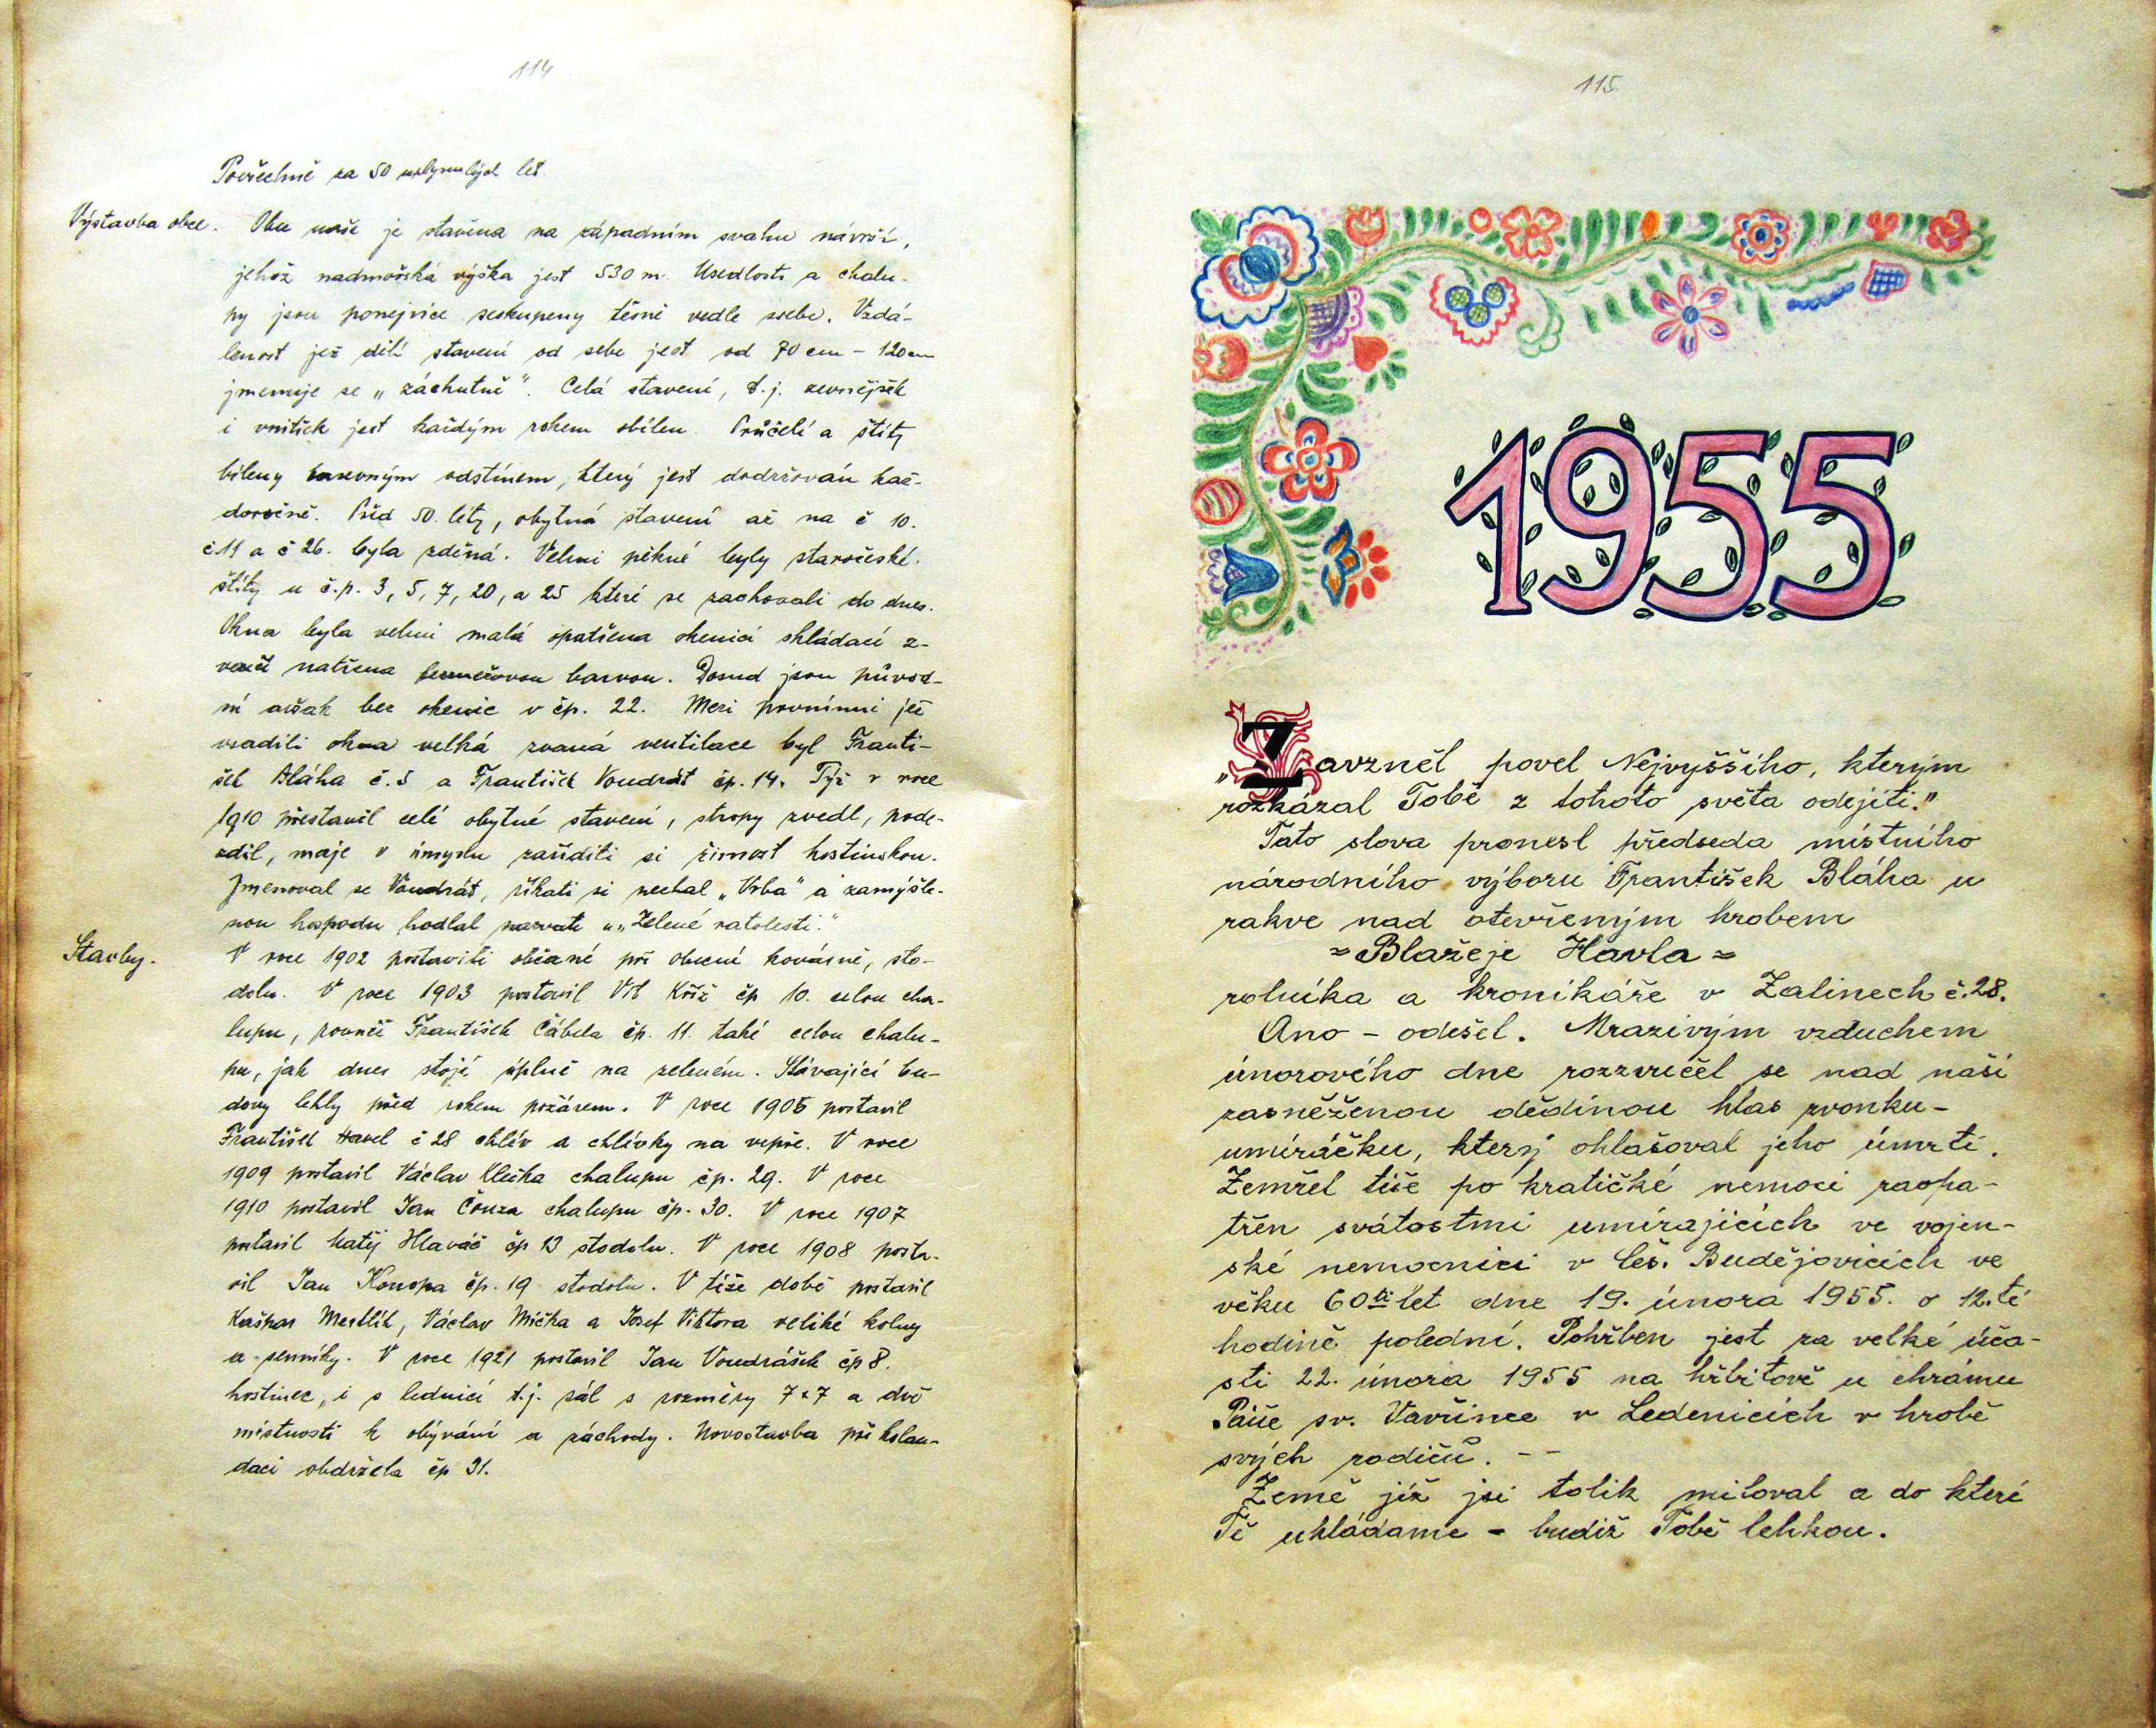 114
Povšechně za 50 uplynulých let.
Výstavba obce. Obec naše je stavěna na západním svahu návrší,
jehož nadmořská výška jest 530 m. Usedlosti a chalu-
py jsou ponejvíce seskupeny těsně vedle sebe. Vzdá-
lenost jež dělí stavení od sebe jest od 70 cm - 120 cm
jmenuje se „záchutně". Celá stavení, t.j. zevnějšek
i vnitřek jest každým rokem obílen. Průčelí a štíty
bíleny barevným odstínem, který jest dodržován kaž-
doročně. Před 50. léty, obytná stavení až na č 10.
č.11 a č 26. byla zděná. Velmi pěkné byly staročeské.
štíty u č.p. 3, 5, 7, 20, a 25 které se zachovali do dnes.
Okna byla velmi malá opatřena okenicí skládací z-
venčí natřena barvou. Dosud jsou původ-
ní avšak bez okenic v čp. 22. Mezi prvními jež
vsadili okna velká zvaná ventilace byl Franti-
šek Bláha č.5 a František Voudrát čp. 14. Týž v roce
1910 přestavil celé obytné stavení, stropy zvedl, pode-
zdil, maje v úmyslu zaříditi si živnost hostinskou.
Jmenoval se Voudrát, říkati si nechal „Vrba" a zamýšle-
nou hospodu hodlal nazvati u „Zelené ratolesti."
Stavby. V roce 1902 postaviti občané při obecní kovárně, sto-
dolu. V roce 1903 postavil Vít Kříž čp 10. celou cha-
lupu, rovněž František Čábela čp. 11. také celou chalu-
pu, jak dnes stojí úplně na zeleném. Stávající bu-
dovy lehly před rokem požárem. V roce 1905 postavil
František Havel č 28 chlév a chlívky na vepře. V roce
1909 postavil Václav Klečka chalupu čp. 29. V roce
1910 postavil Jan Čouza chalupu čp. 30. V roce 1907
postavil Matěj Hlaváč čp 13 stodolu. V roce 1908 posta-
vil Jan Konopa čp. 19 stodolu. V téže době postavil
Kašpar Mestlík, Václav Mička a Josef Viktora veliké kolny
a senníky. V roce 1921 postavil Jan Voudrášek čp 8.
hostinec, i s lednicí t.j. sál s rozměry 7x7 a dvě
místnosti k obývání a záchody. Novostavba při kolau-
daci obdržela čp 31.
115
1955
„Zavzněl povel Nejvyššího, kterým
rozkázal Tobě z tohoto světa odejíti."
Tato slova pronesl předseda místního
národního výboru František Bláha u
rakve nad otevřeným hrobem
= Blažeje Havla =
rolníka a kronikáře v Zalinech č.28.
Ano - odešel. Mrazivým vzduchem
únorového dne rozzvučel se nad naší
zasněženou dědinou hlas zvonku-
umíráčku, který ohlašoval jeho úmrtí.
Zemřel tiše po kratičké nemoci zaopa-
třen svátostmi umírajících ve vojen-
ské nemocnici v Čes. Budějovicích ve
věku 60ti let dne 19. února 1955. o 12.té
hodině polední. Pohřben jest za velké úča-
sti 22. února 1955 na hřbitově u chrámu
Páně sv. Vavřince v Ledenicích v hrobě
svých rodičů. - -
Země již jsi tolik miloval a do které
Tě ukládáme - budiž Tobě lehkou.